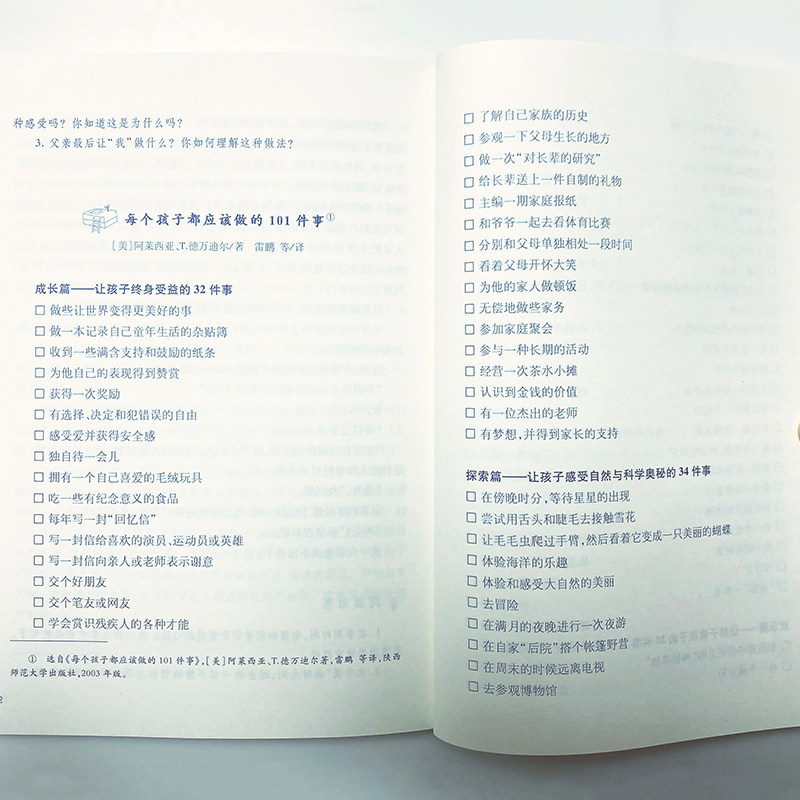 种感受吗？你知道这是为什么吗？
3. 父亲最后让“我”做什么？你如何理解这种做法？
每个孩子都应该做的 101 件事①
［美］阿莱西亚.T.德万迪尔/著 雷鹏 等/译
成长篇——让孩子终身受益的 32 件事
□ 做些让世界变得更美好的事
□ 做一本记录自己童年生活的杂贴簿
□ 收到一些满含支持和鼓励的纸条
□ 为他自己的表现得到赞赏
□ 获得一次奖励
□ 有选择、决定和犯错误的自由
□ 感受爱并获得安全感
□ 独自待一会儿
□ 拥有一个自己喜爱的毛绒玩具
□ 吃一些有纪念意义的食品
□ 每年写一封“回忆信”
□ 写一封信给喜欢的演员、运动员或英雄
□ 写一封信向亲人或老师表示谢意
□ 交个好朋友
□ 交个笔友或网友
□ 学会赏识残疾人的各种才能
① 选自《每个孩子都应该做的 101 件事》,［美］阿莱西亚.T.德万迪尔著,雷鹏 等译,陕西
师范大学出版社,2003 年版。
2
□ 了解自己家族的历史
□ 参观一下父母生长的地方
□ 做一次“对长辈的研究”
□ 给长辈送上一件自制的礼物
□ 主编一期家庭报纸
□ 和爷爷一起去看体育比赛
□ 分别和父母单独相处一段时间
□ 看着父母开怀大笑
□ 为他的家人做顿饭
□ 无偿地做些家务
□ 参加家庭聚会
□ 参与一种长期的活动
□ 经营一次茶水小摊
□ 认识到金钱的价值
□ 有一位杰出的老师
□ 有梦想,并得到家长的支持
探索篇——让孩子感受自然与科学奥秘的 34 件事
□ 在傍晚时分,等待星星的出现
□ 尝试用舌头和睫毛去接触雪花
□ 让毛毛虫爬过手臂,然后看着它变成一只美丽的蝴蝶
□ 体验海洋的乐趣
□ 体验和感受大自然的美丽
□ 去冒险
□ 在满月的夜晚进行一次夜游
□ 在自家“后院”搭个帐篷野营
□ 在周末的时候远离电视
□ 去参观博物馆